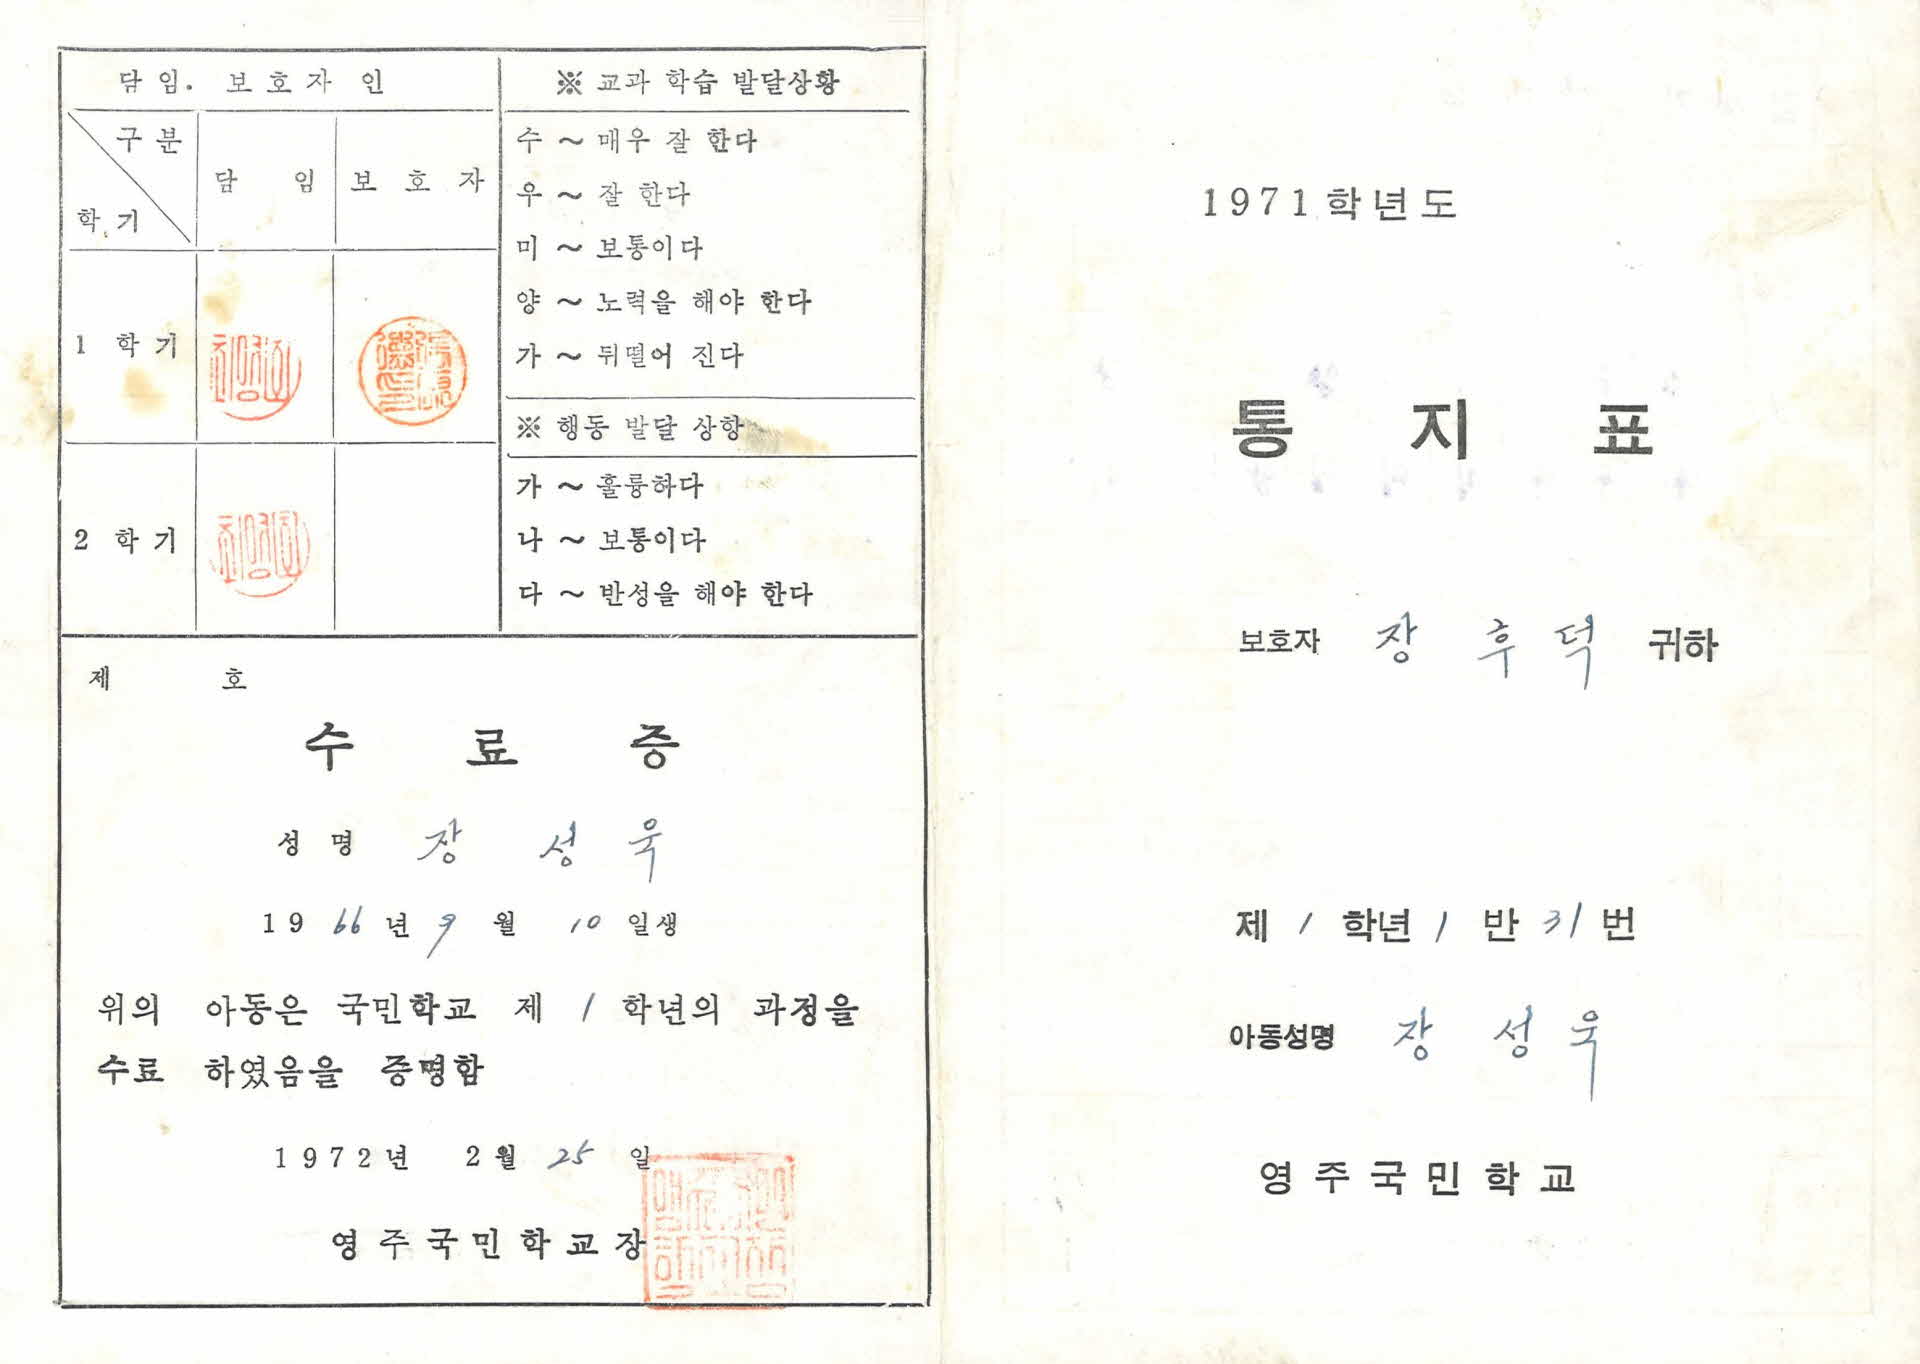 담임. 보호자 인
구분
학기
담 임
보 호 자
1 학기
2 학기
※ 교과 학습 발달상황
수 ~ 매우 잘 한다
우 ~ 잘 한다
미 ~ 보통이다
양 ~ 노력을 해야 한다
가 ~ 뒤떨어 진다
※ 행동 발달 상항
가 ~ 훌륭하다
나 ~ 보통이다
다 ~ 반성을 해야 한다
제 호
수 료 증
성 명 장 성 욱
1966년 9월 10일생
위의 아동은 국민학교 제 1 학년의 과정을
수료 하였음을 증명함
1972년 2월 25일
영주국민학교장
1971학년도
통 지 표
보호자 장 후 덕 귀하
제 1 학년 1 반 31 번
아동성명 장 성 욱
영주국민학교